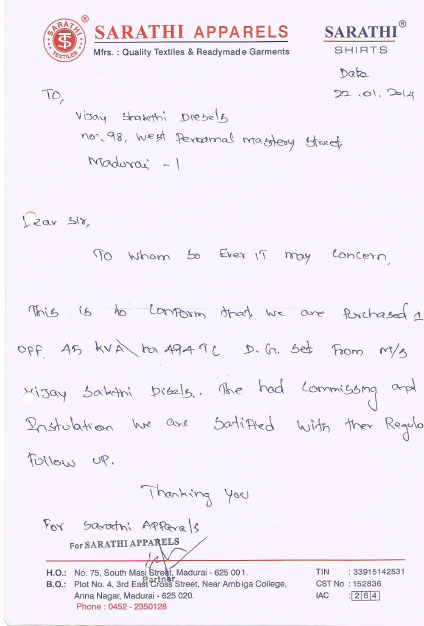 SARATHI TEXTILES
SARATHI APPARELS
Mfrs. : Quality Textiles & Readymade Garments
SARATHI
SHIRTS
Date
22.01.2014
To,
Vijay Shakthi Diesels
no. 98, West Perosmal Mastery Street,
Madurai - 1
Dear Sir,
To whom so Ever IT may Concern,
This is to Conform that we are Purchased 1
off. 45 KVA\ 494TC D.G. Set From M/s
Vijay Sakthi Disels.. The had Commissng and
Instulation We are Satified With ther Regula
Follow UP.
Thanking You
For Sarathi Apparals
For SARATHI APPARELS
Partner
H.O.: No. 75, South Masi Street, Madurai - 625 001.
B.O.: Plot No. 4, 3rd East Cross Street, Near Ambiga College,
Anna Nagar, Madurai - 625 020.
Phone : 0452 - 2350128
TIN : 33915142531
CST No : 152836
IAC : 264